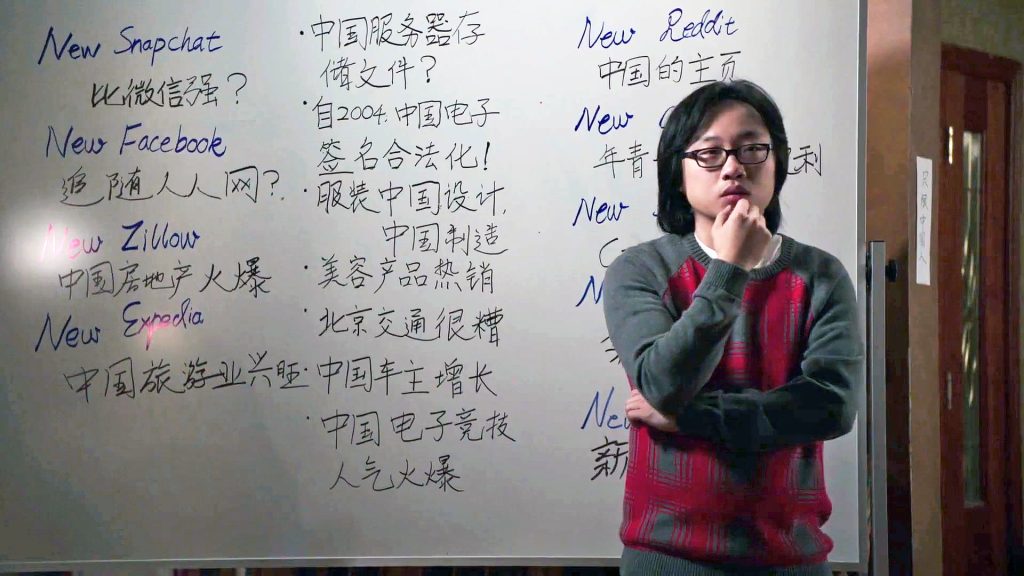 New Snapchat
比微信强？
New Facebook
追随人人网？
New Zillow
中国房地产火爆
New Expedia
中国旅游业兴旺
·中国服务器存
储文件？
·自2004.中国电子
签名合法化！
·服装中国设计，
中国制造
·美容产品热销
·北京交通很糟
·中国车主增长
·中国电子竞技
人气火爆
New Reddit
中国的主页
New
年青
利
New
New
新